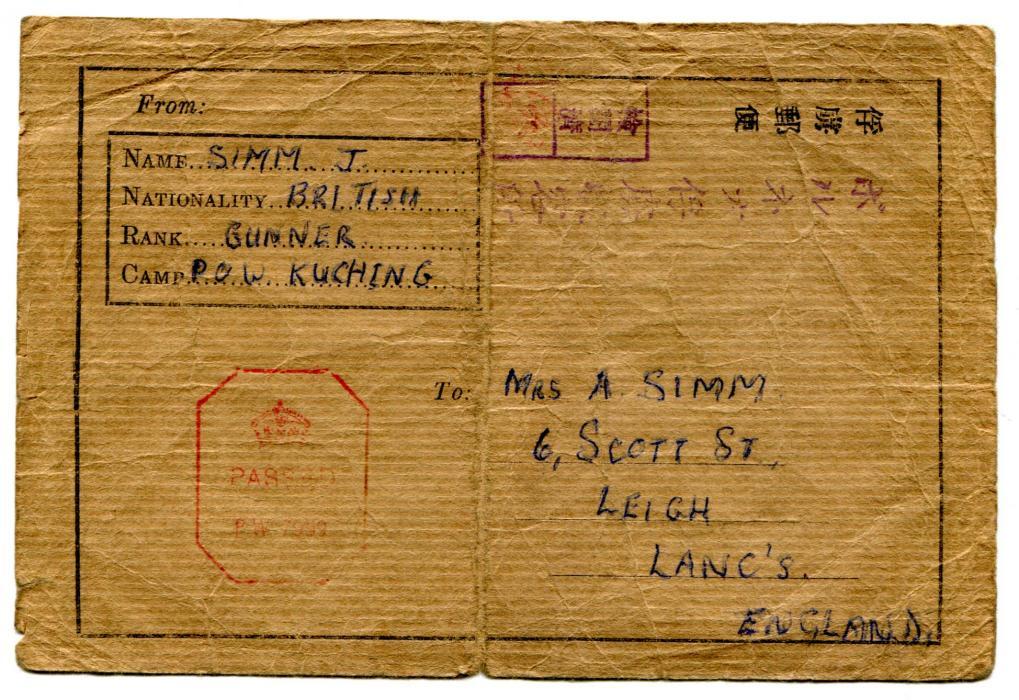 From:
NAME..SIMM. J.
NATIONALITY..BRITISH
RANK.....GUNNER
CAMP P.O.W. KUCHING
俘虜郵便
検閲済
ボルネオ俘虜収容所
PASSED
To: MRS A. SIMM.
6, SCOTT ST.,
LEIGH
LANC'S.
ENGLAND.